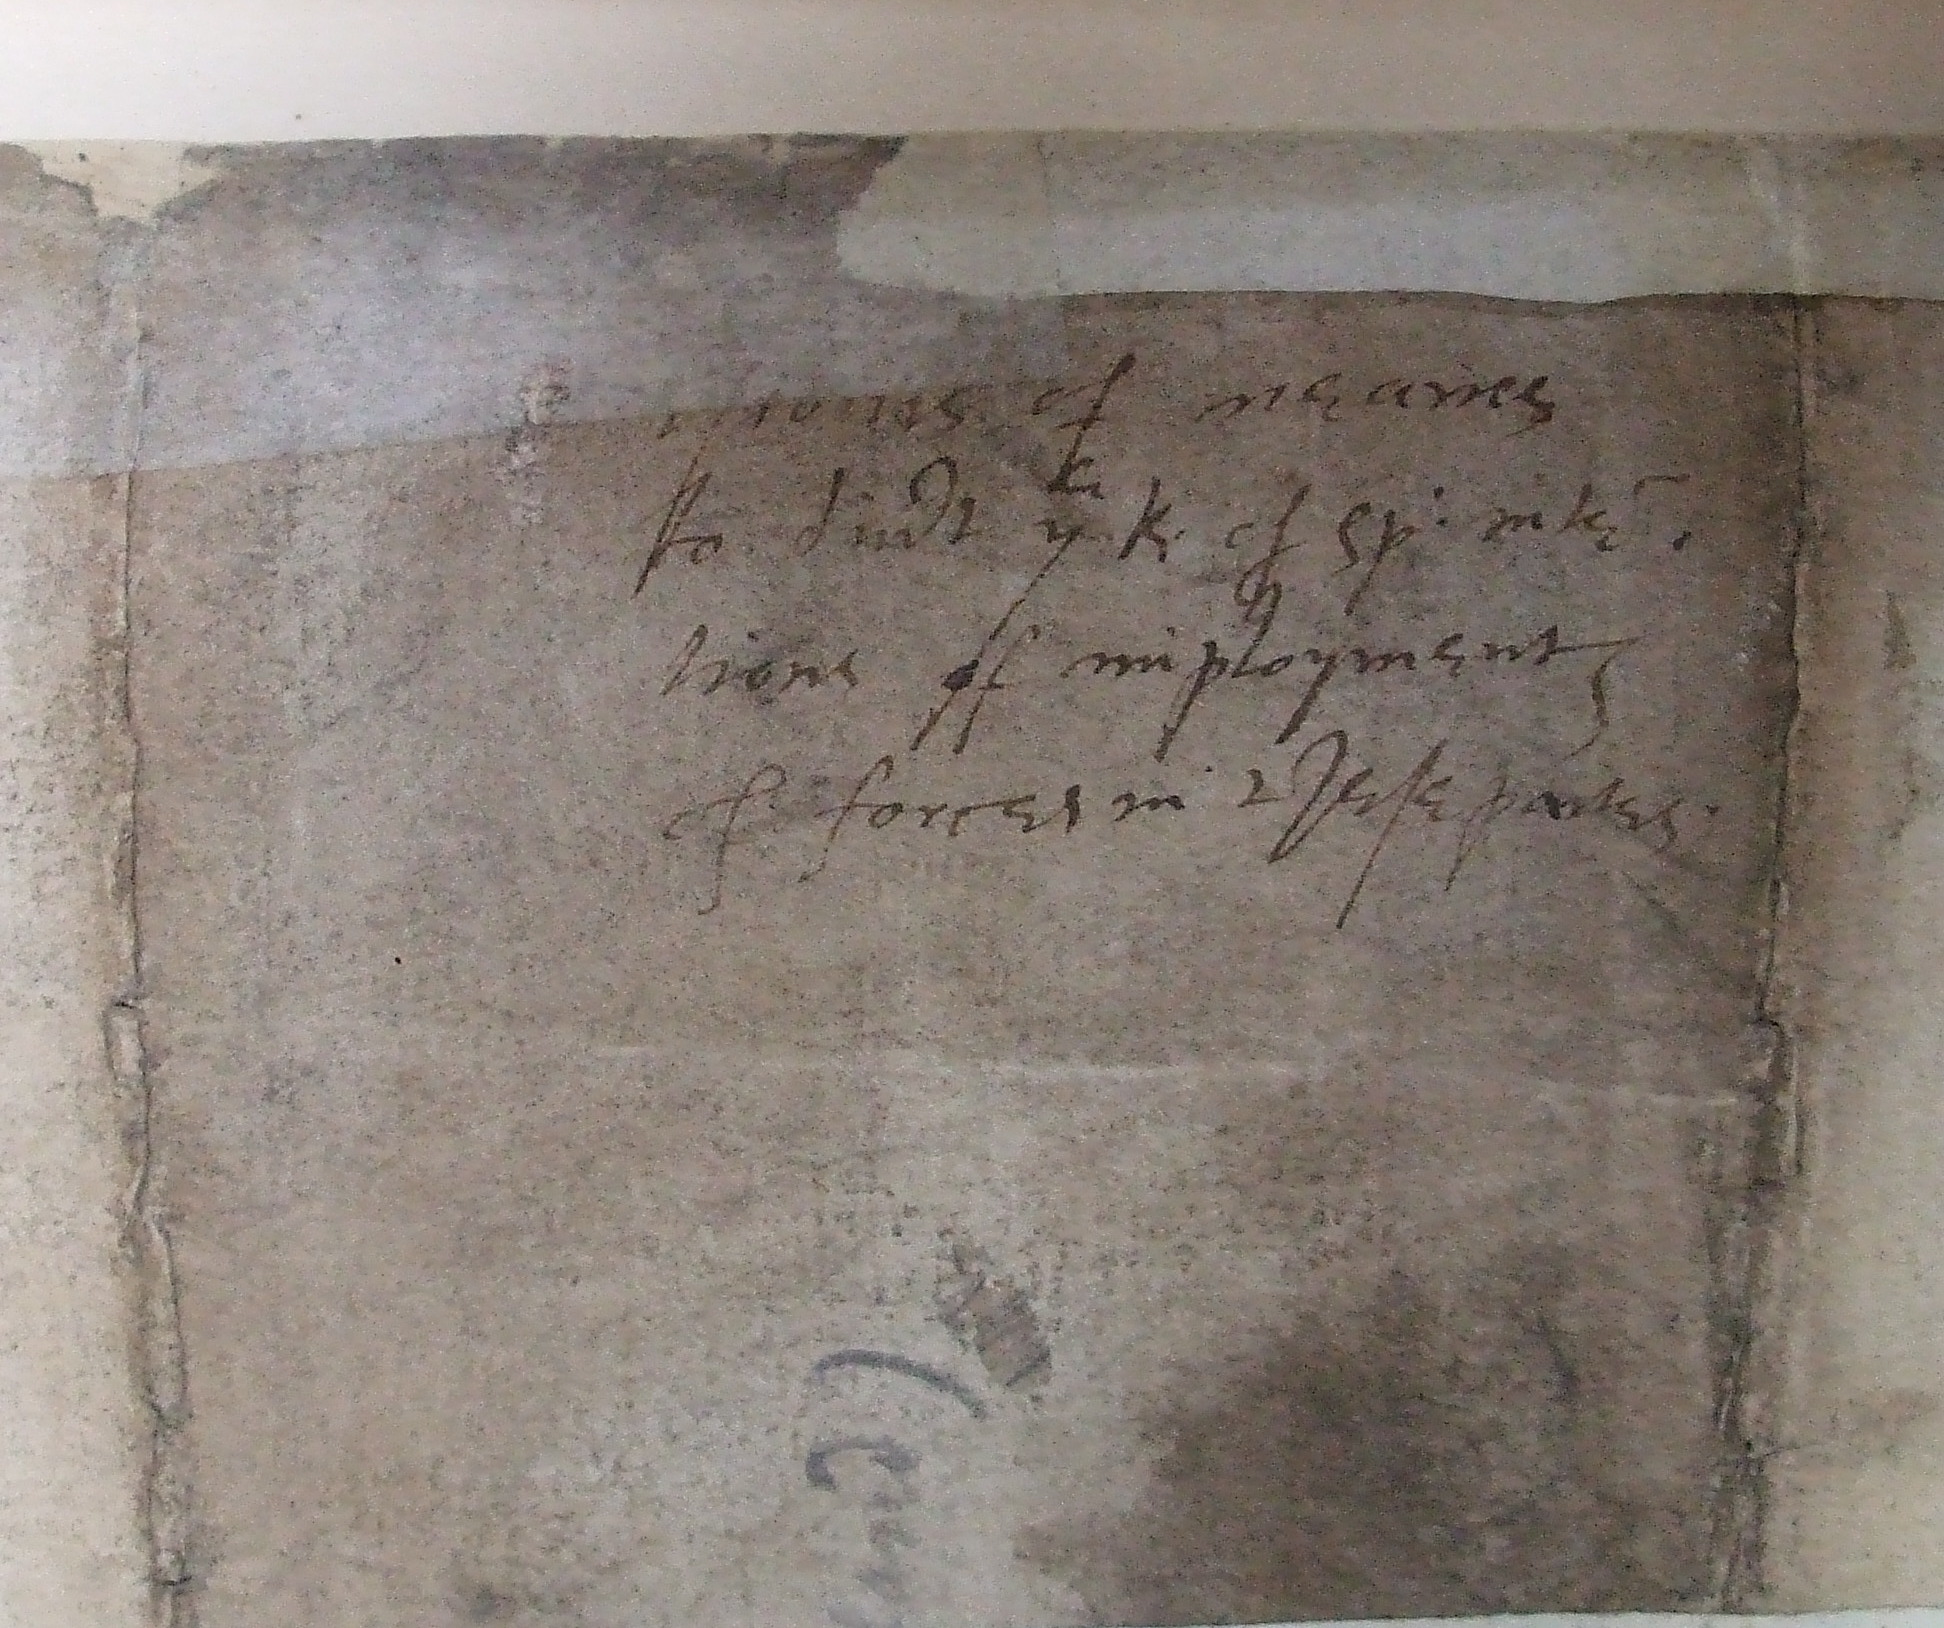 of meanes
to divert ye k. of sp. inte͞.
tions of imployment
of forces in these partes.